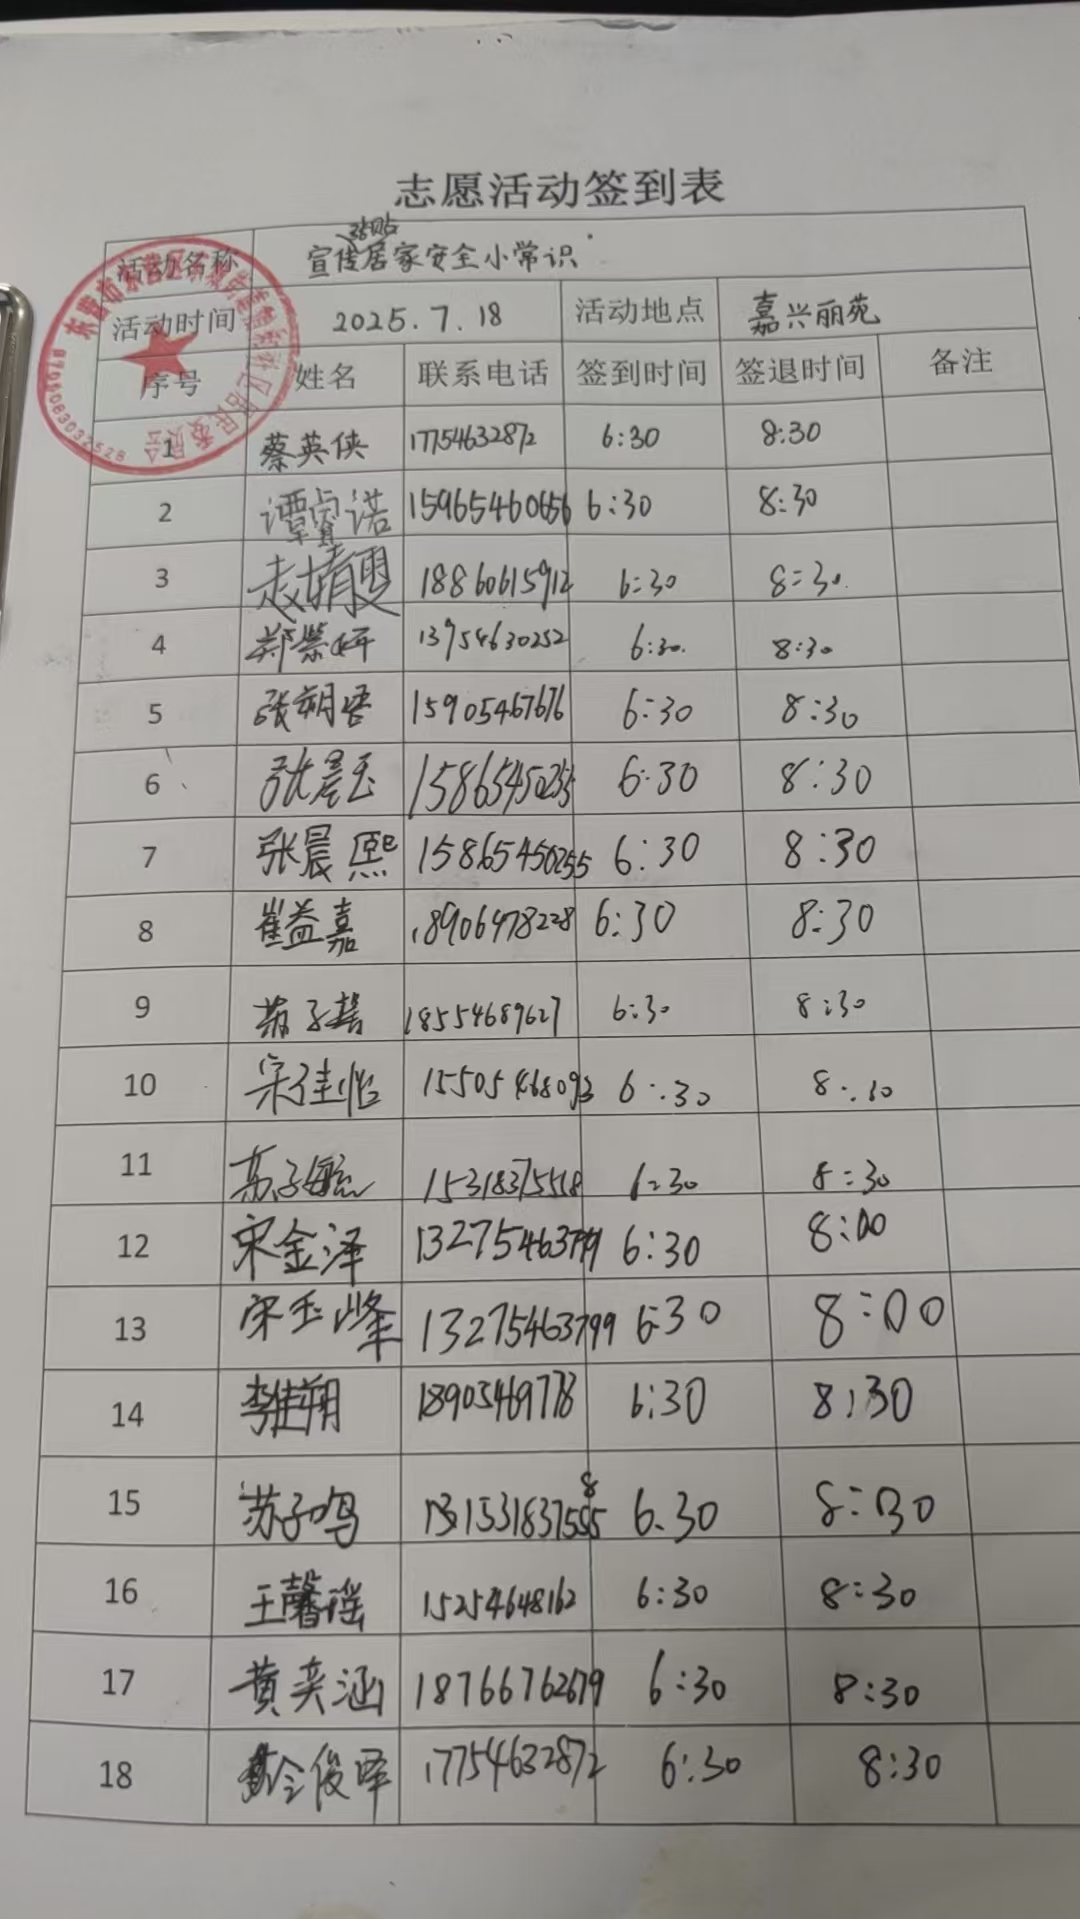 志愿活动签到表
张贴
活动名称 宣传居家安全小常识
活动时间 2025.7.18 活动地点 嘉兴丽苑
序号 姓名 联系电话 签到时间 签退时间 备注
1 蔡英侠 17754632872 6:30 8:30
2 谭贞诺 15965460656 6:30 8:30
3 赵婧雯 18860615912 6:30 8:30
4 郑崇妍 13954630252 6:30 8:30
5 张朔语 15905467676 6:30 8:30
6 张晨玉 15865450255 6:30 8:30
7 张晨熙 15865450255 6:30 8:30
8 崔益嘉 18906478228 6:30 8:30
9 苏子馨 18554689627 6:30 8:30
10 宋佳怡 15505468093 6:30 8:30
11 苏子毓 15318375518 6:30 8:30
12 宋金泽 13275463799 6:30 8:00
13 宋玉峰 13275463799 6:30 8:00
14 李佳朔 18905469778 6:30 8:30
15 苏子鸣 6.30 8:30
16 王馨瑶 15254648162 6:30 8:30
17 黄奕涵 18766762679 6:30 8:30
18 俊泽 17754632872 6:30 8:30